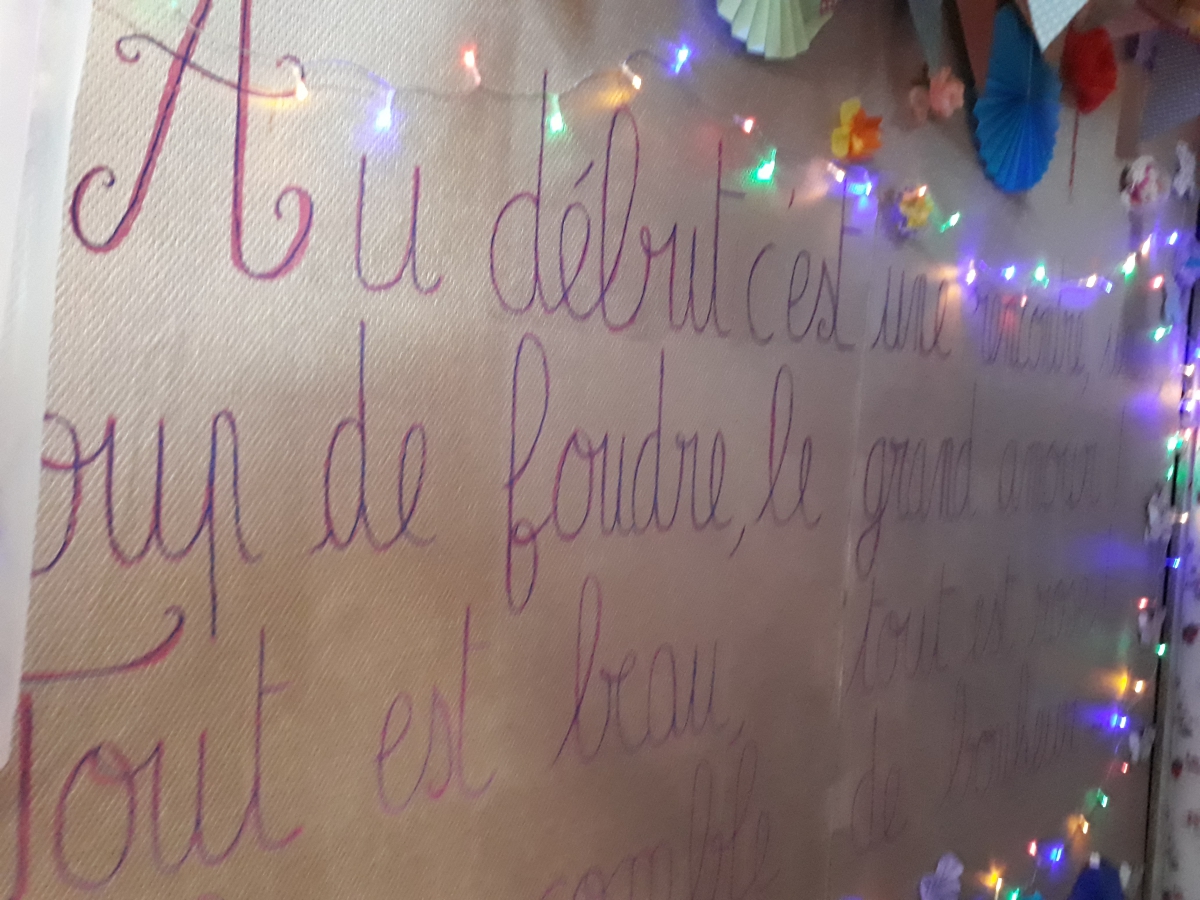 Au début c'est une rencontre,
oup de foudre, le grand amour
Tout est beau, tout est
comble de bonheur